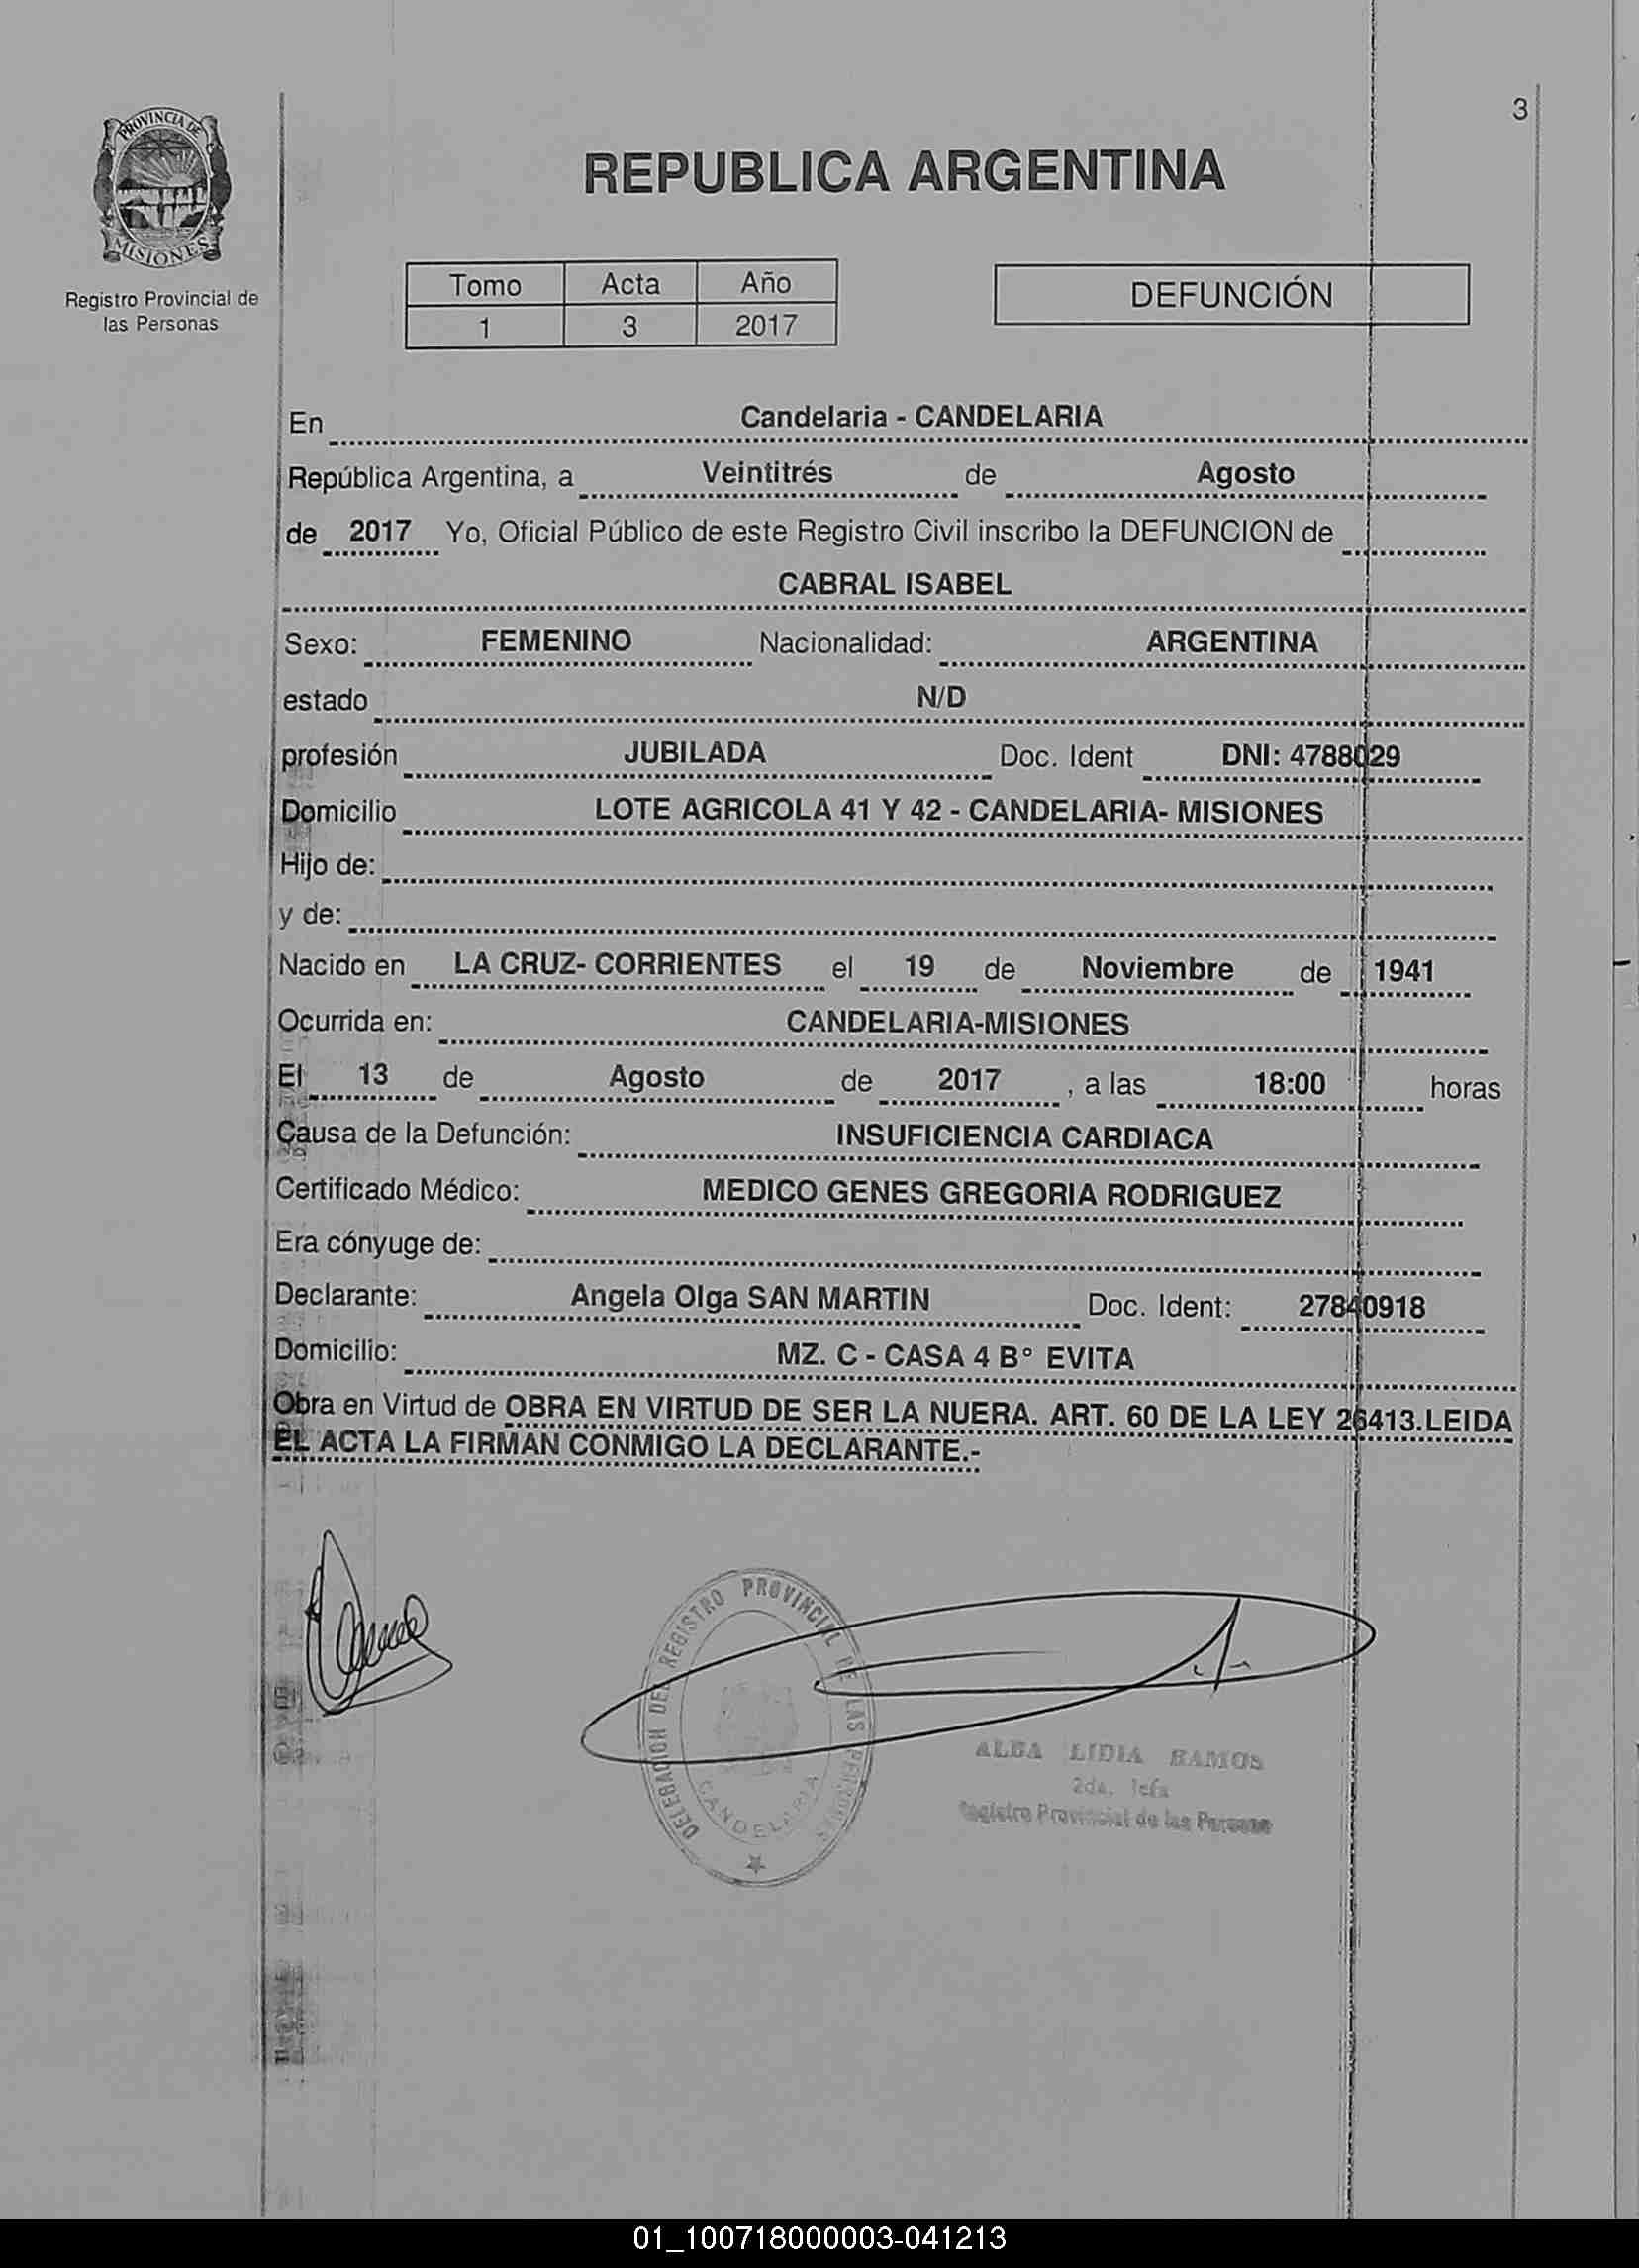 3
PROVINCIA DE
MISIONES
Registro Provincial de
las Personas
REPUBLICA ARGENTINA
Tomo Acta Año
1 3 2017
DEFUNCIÓN
En Candelaria - CANDELARIA
República Argentina, a Veintitrés de Agosto
de 2017 Yo, Oficial Público de este Registro Civil inscribo la DEFUNCION de
CABRAL ISABEL
Sexo: FEMENINO Nacionalidad: ARGENTINA
estado N/D
profesión JUBILADA Doc. Ident DNI: 4788029
Domicilio LOTE AGRICOLA 41 Y 42 - CANDELARIA- MISIONES
Hijo de:
y de:
Nacido en LA CRUZ- CORRIENTES el 19 de Noviembre de 1941
Ocurrida en: CANDELARIA-MISIONES
El 13 de Agosto de 2017 , a las 18:00 horas
Causa de la Defunción: INSUFICIENCIA CARDIACA
Certificado Médico: MEDICO GENES GREGORIA RODRIGUEZ
Era cónyuge de:
Declarante: Angela Olga SAN MARTIN Doc. Ident: 27840918
Domicilio: MZ. C - CASA 4 B° EVITA
Obra en Virtud de OBRA EN VIRTUD DE SER LA NUERA. ART. 60 DE LA LEY 26413.LEIDA
EL ACTA LA FIRMAN CONMIGO LA DECLARANTE.-
DELEGACION DEL REGISTRO PROVINCIAL DE LAS PERSONAS
CANDELARIA
ALBA LIDIA RAMOS
2da. Jefa
Registro Provincial de las Personas
01_100718000003-041213